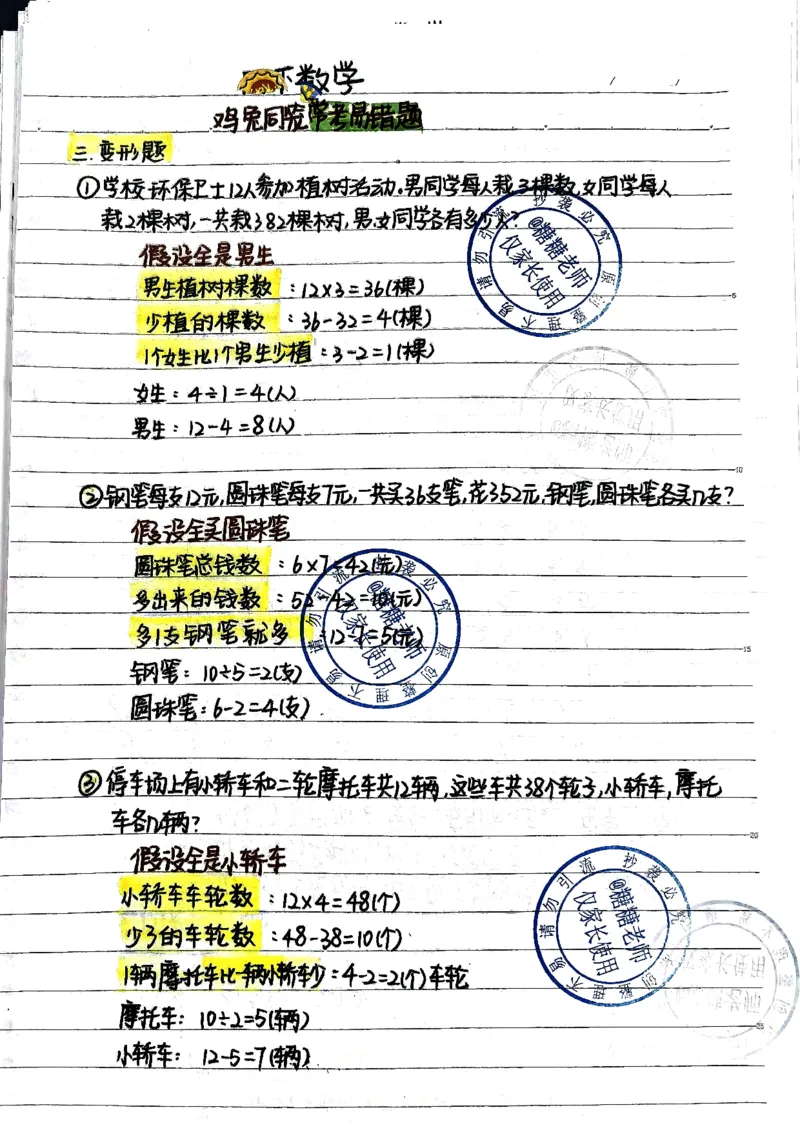 下数学
鸡兔同笼常考易错题
三.变形题
①学校环保卫士12人参加植树活动.男同学每人栽3棵数,女同学每人
栽2棵树,一共栽382棵树,男,女同学各有多少人?
假设全是男生
男生植树棵数:12×3=36(棵)
少植的棵数:36-32=4(棵)
1个女生比1个男生少植:3-2=1(棵)
女生:4÷1=4(人)
男生:12-4=8(人)
②钢笔每支12元,圆珠笔每支7元,一共买36支笔,花352元,钢笔,圆珠笔各买几支?
假设全买圆珠笔
圆珠笔总钱数:6×7=42(元)
多出来的钱数:52-42=10(元)
多1支钢笔就多:12-7=5(元)
钢笔:10÷5=2(支)
圆珠笔:6-2=4(支)
③停车场上有小轿车和二轮摩托车共12车辆,这些车共38个轮子,小轿车,摩托
车各几辆?
假设全是小轿车
小轿车车轮数:12×4=48(个)
少了的车轮数:48-38=10(个)
1辆摩托车比一辆小轿车少:4-2=2(个)车轮
摩托车:10÷2=5(辆)
小轿车:12-5=7(辆)
@糖糖老师
仅家长使用
原创整理不易请勿引流抄袭必究
@糖糖老师
仅家长使用
原创整理不易请勿引流抄袭必究
@糖糖老师
仅家长使用
原创整理不易请勿引流抄袭必究
5
10
15
20
25